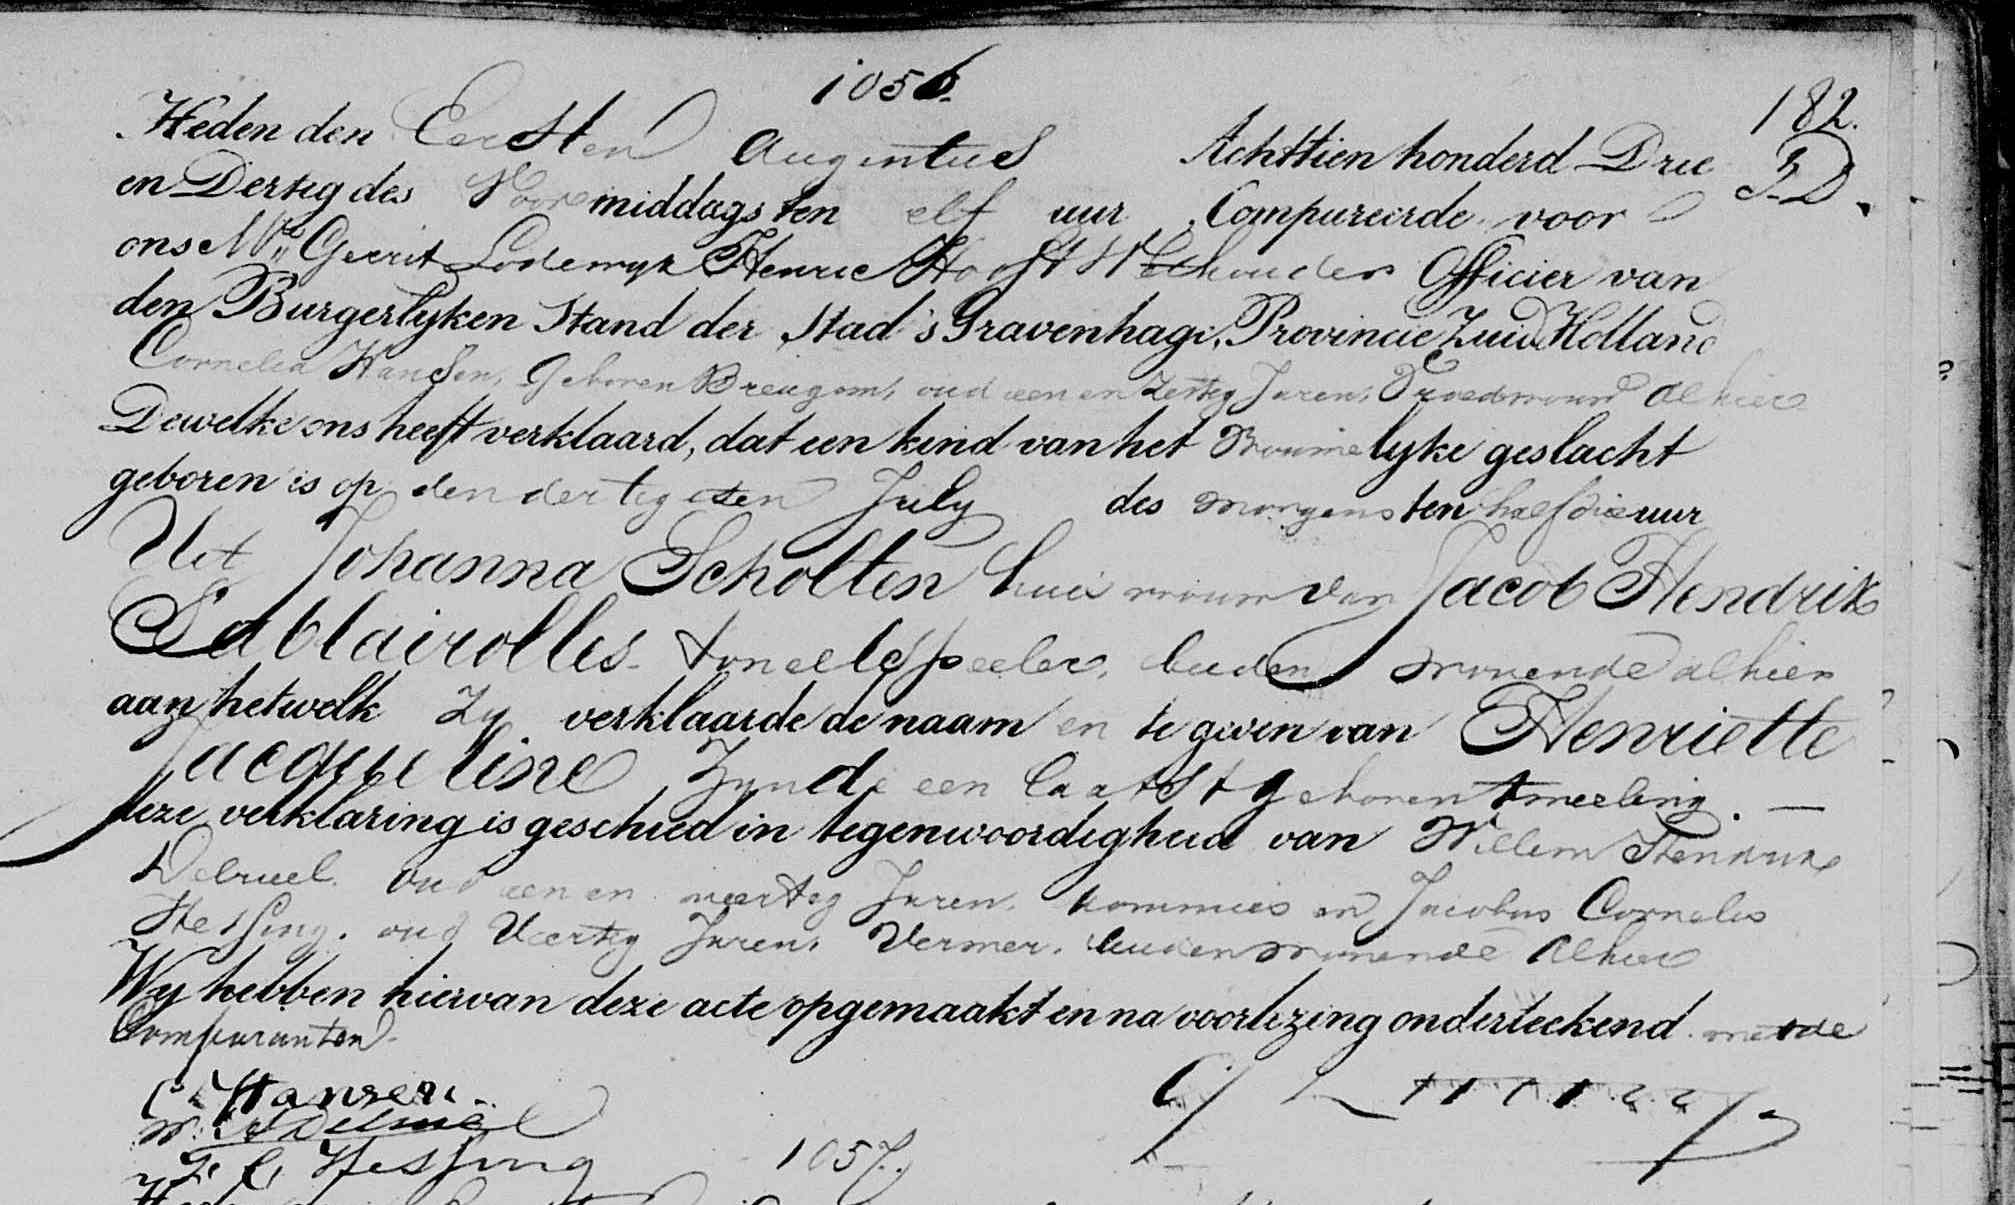 1056.
182.
Heden den Eersten Augustus Achttien honderd Drie
en Dertig des Voormiddags ten elf uur, Compareerde voor
ons Mr. Gerrit Lodewyk Henric Hooft Wethouder Officier van
den Burgerlyken Stand der Stad 's Gravenhage, Provincie Zuid Holland
Cornelia Hansen, Geboren Breugom, oud een en Zestig Jaren, Vroedvrouw alhier
Dewelke ons heeft verklaard, dat een kind van het Vrouwelyke geslacht
geboren is op den dertigsten July des morgens ten half drie uur
Uit Johanna Scholten huisvrouw van Jacob Hendrik
Sablairolles toneelspeeler, beiden wonende alhier
aan hetwelk Zy verklaarde de naamen te geven van Henriette
Jacqueline Zynde een laatst geboren tweeling.
deze verklaring is geschied in tegenwoordigheid van Willem Hendrik
oud een en veertig Jaren, kommies en Jacobus Cornelis
Hessing, oud Veertig Jaren, Verwer, beiden wonende Alhier
Wy hebben hiervan deze acte opgemaakt en na voorlezing onderteekend met de
Comparanten.
C Hansen
J. C. Hessing
1057.